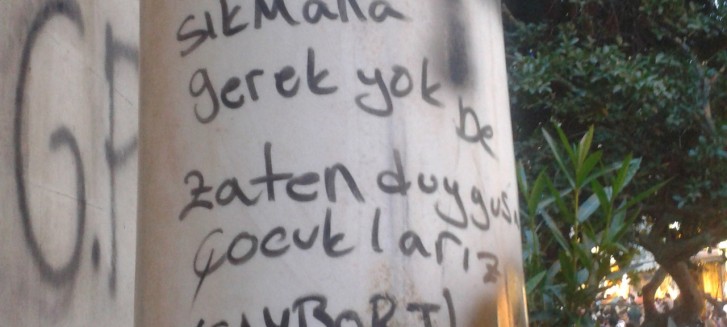 G.P
sıkMaNa
gerek yok
be
zaten duygus
çocuklarız